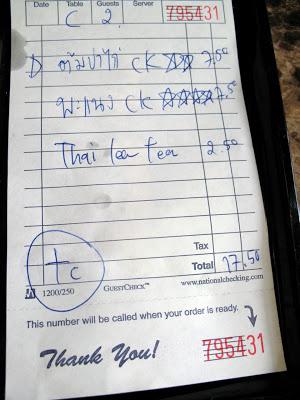 Date Table Guests Server 795431
C 2
D ต้มข่าไก่ CK ☆☆ 7.50
พะแนง CK ☆☆☆☆ 7.50
Thai Ice Tea 2.50
Tax
Total 17.50
Tc
1200/250 GUESTCHECK™ www.nationalchecking.com
This number will be called when your order is ready.
Thank You! 795431